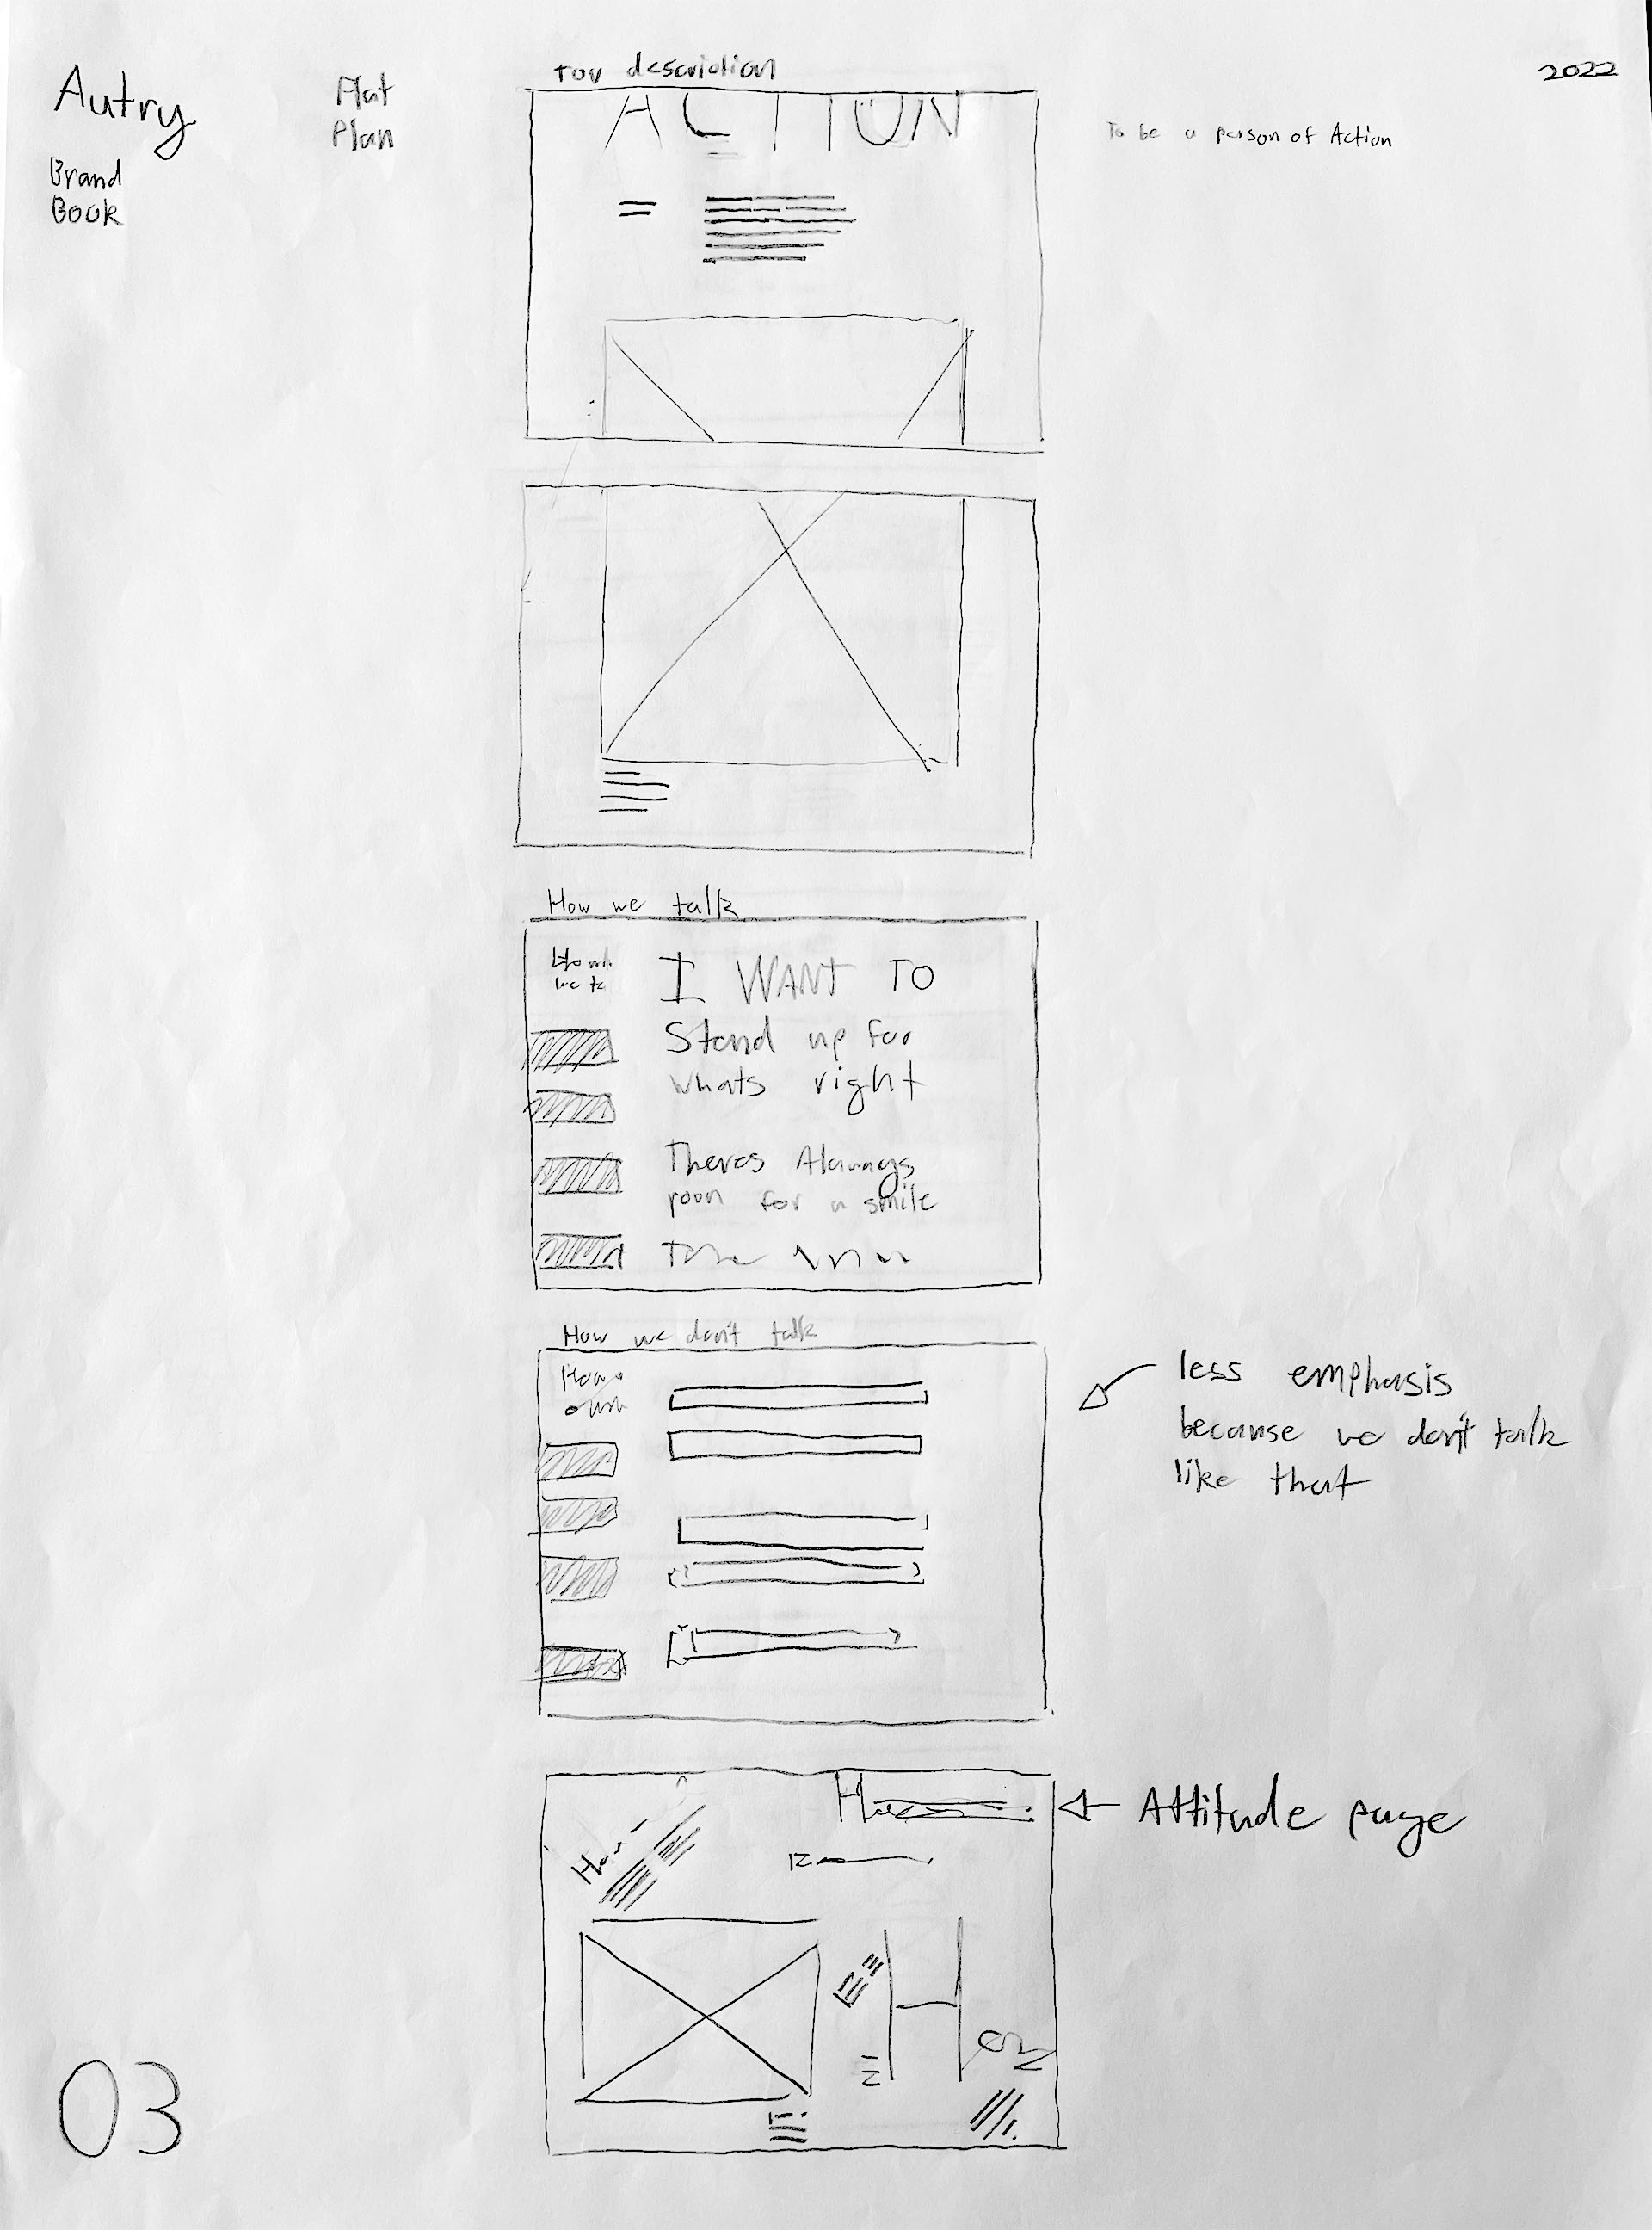 Autry
Brand
Book
Flat
Plan
2022
Tov description
ACTION
To be a person of Action
How we talk
I WANT TO
Stand up for
whats right
Theres Always
room for a smile
How we don't talk
less emphasis
because we don't talk
like that
Attitude page
03